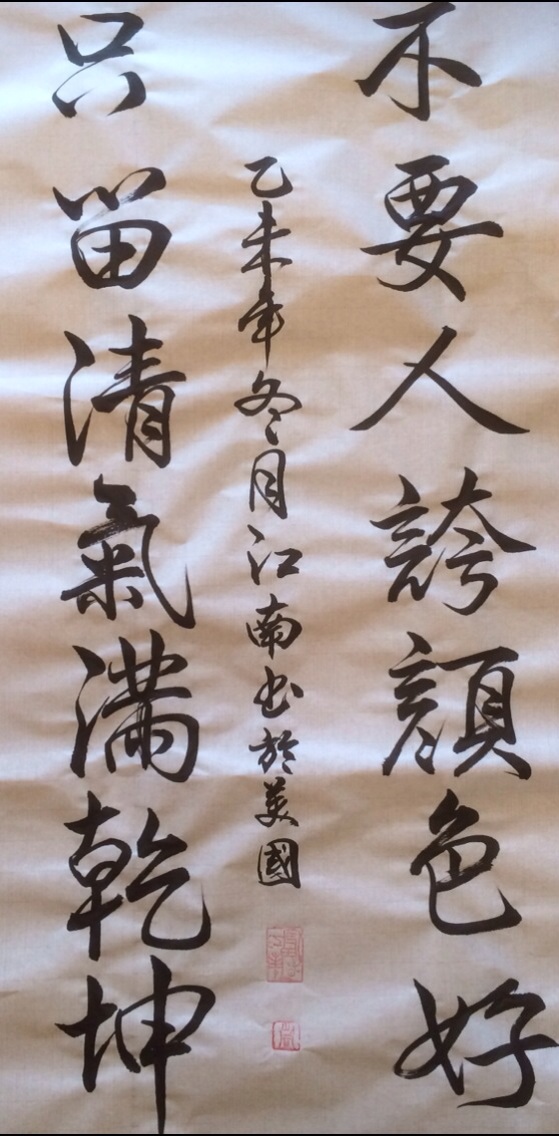 不要人誇顔色好
只留清氣滿乾坤
乙未年冬月江南书於美國